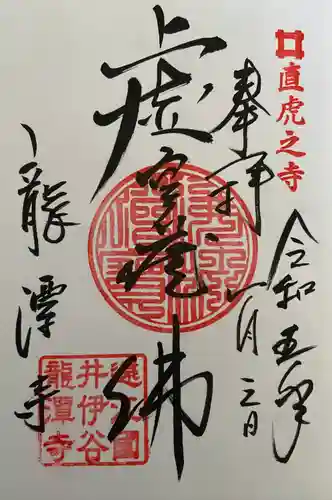 直虎之寺
令和五年
奉拝
一月三日
虚空蔵佛
龍潭寺
遠江國
井伊谷
龍潭寺